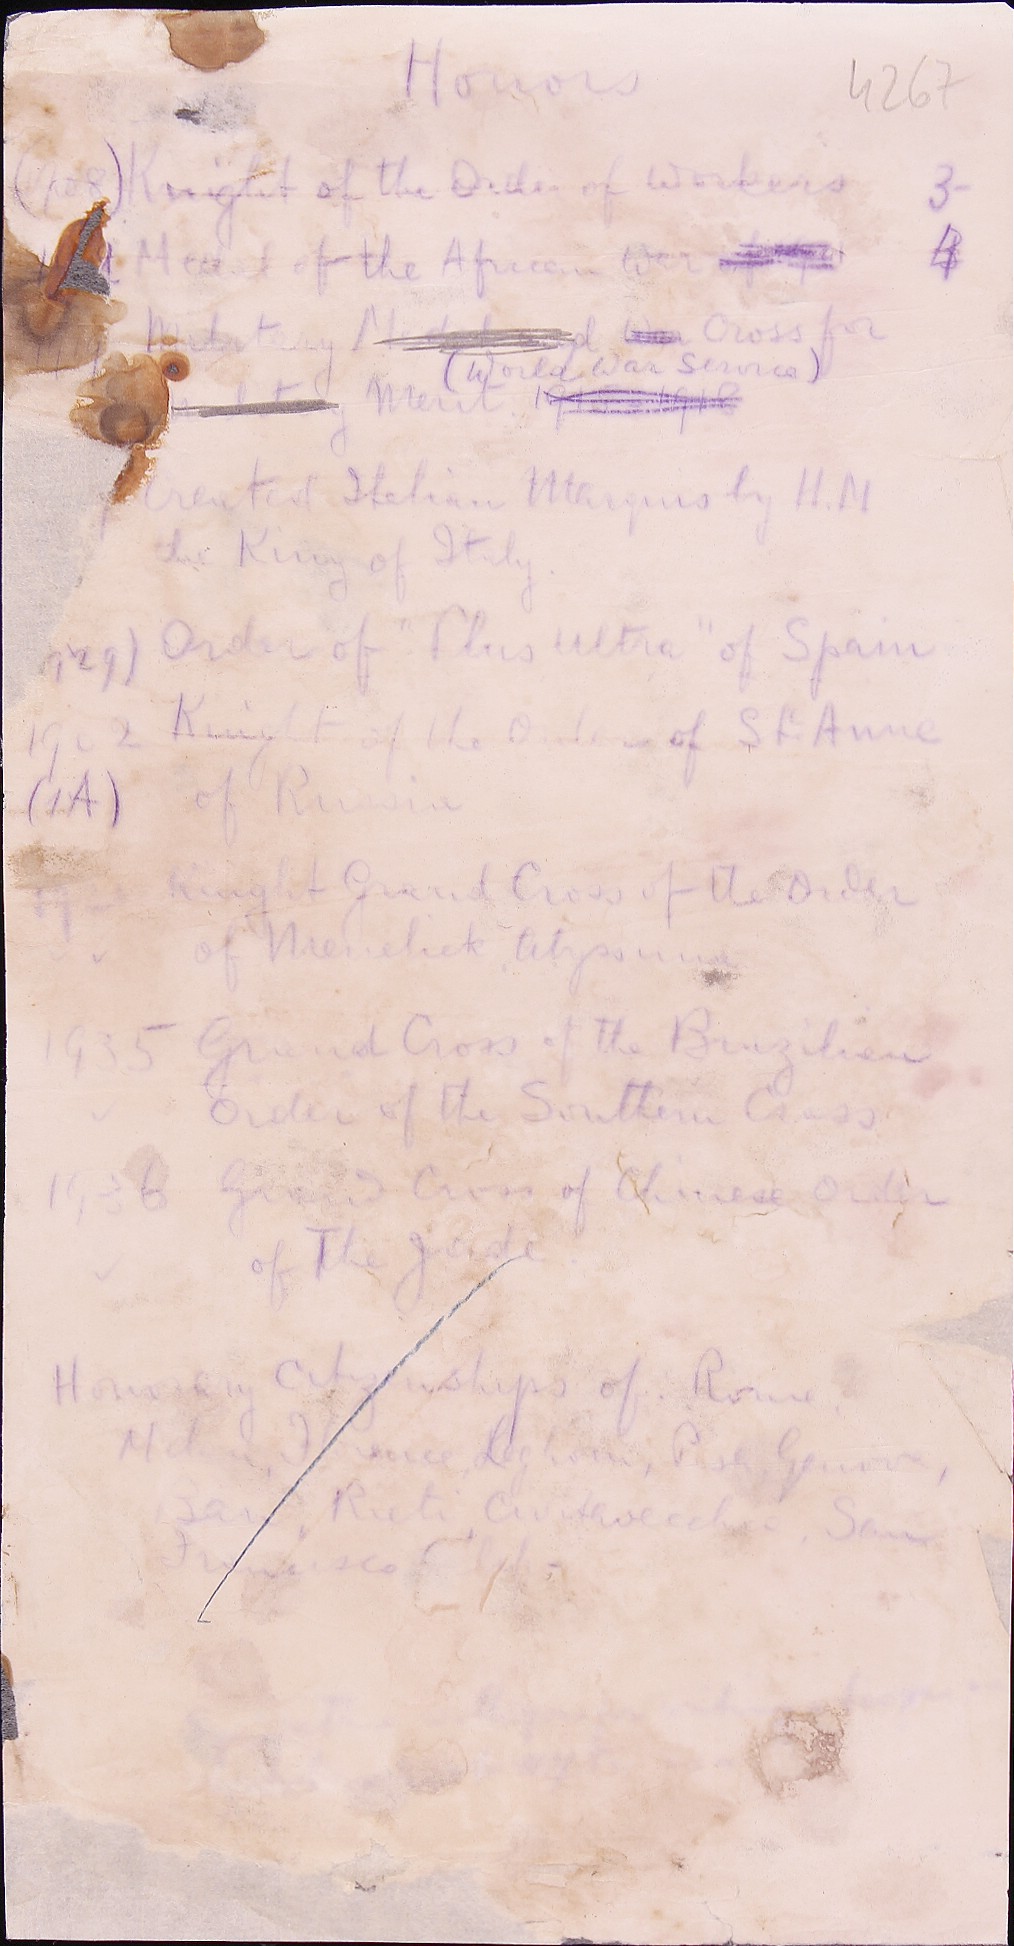 Honors 4267
(1908) Knight of the Order of Workers 3
Medal of the African War 4
Military Medal and War Cross for
(World War Service)
Military Merit 1915-1918
Created Italian Marquis by H.M
the King of Italy.
1929) Order of "Plus Ultra" of Spain
1902 Knight of the Order of St. Anne
(1A) of Russia
Knight Grand Cross of the Order
of Menelick Abyssinia
1935 Grand Cross of the Brazilian
Order of the Southern Cross
1936 Grand Cross of Chinese Order
of The Jade.
Honorary Citizenships of: Rome,
Florence, Leghorn, Pisa, Genova,
Bari, Rieti, Civitavecchia, San
Francisco